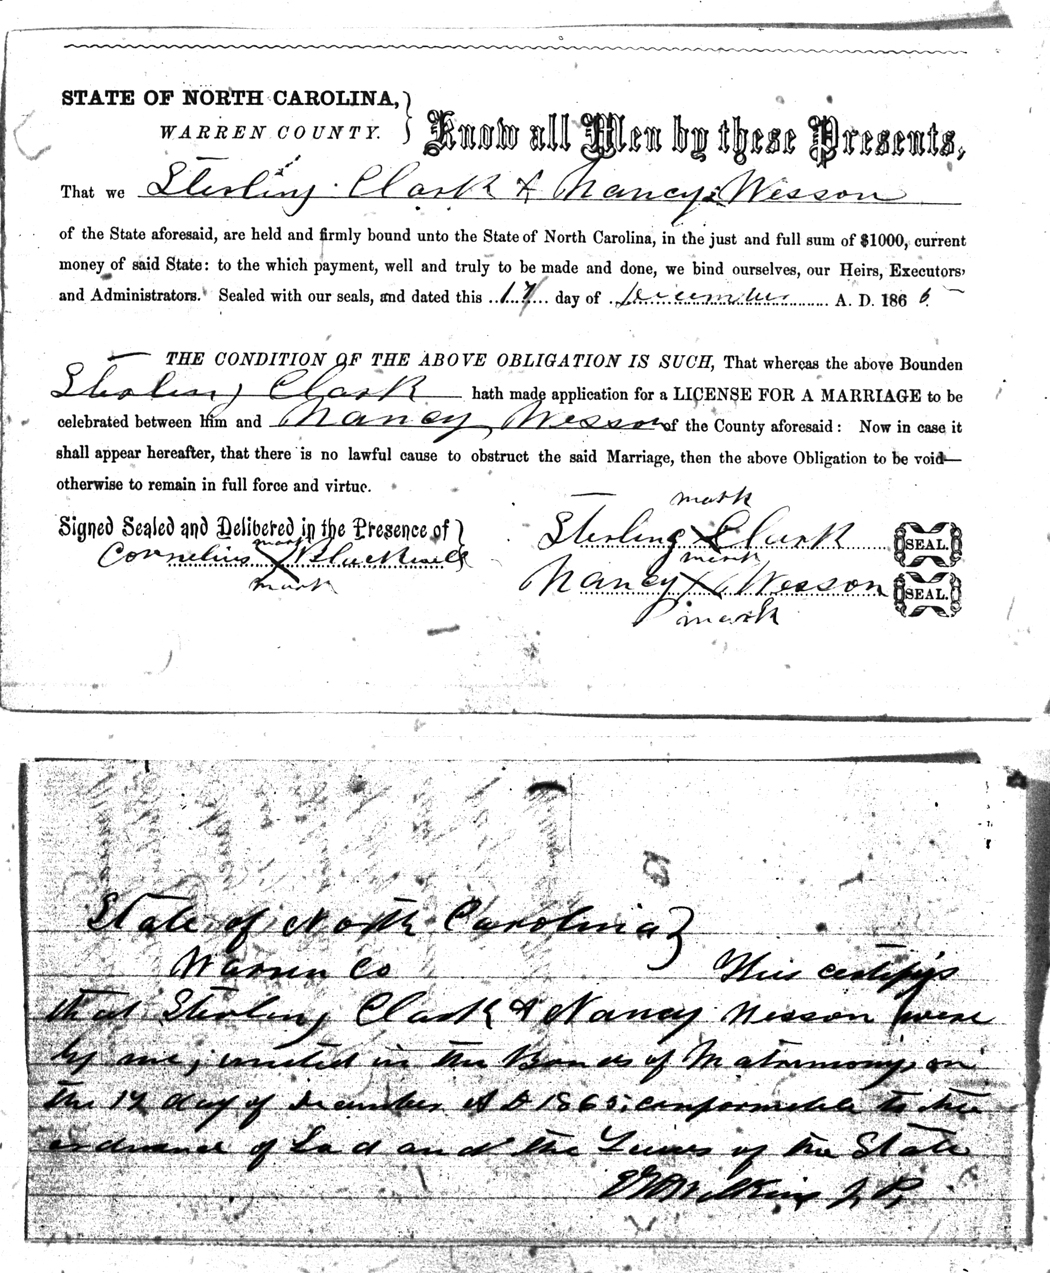 STATE OF NORTH CAROLINA, }
WARREN COUNTY.
Know all Men by these Presents,
That we Sterling Clark & Nancy Wesson
of the State aforesaid, are held and firmly bound unto the State of North Carolina, in the just and full sum of $1000, current
money of said State: to the which payment, well and truly to be made and done, we bind ourselves, our Heirs, Executors,
and Administrators. Sealed with our seals, and dated this 17 day of December A. D. 1865
THE CONDITION OF THE ABOVE OBLIGATION IS SUCH, That whereas the above Bounden
Sterling Clark hath made application for a LICENSE FOR A MARRIAGE to be
celebrated between him and Nancy Wesson of the County aforesaid: Now in case it
shall appear hereafter, that there is no lawful cause to obstruct the said Marriage, then the above Obligation to be void—
otherwise to remain in full force and virtue.
mark
Signed Sealed and Delivered in the Presence of }
Sterling X Clark SEAL.
mark
Cornelius X Blackwell
mark
mark
Nancy X Wesson SEAL.
mark
State of North Carolina }
Warren Co This certifys
that Sterling Clark & Nancy Wesson were
by me, united in the Bonds of Matrimony on
the 17 day of December A D 1865, conformable to the
ordinance of God and the Laws of the State
Wilkins J P.